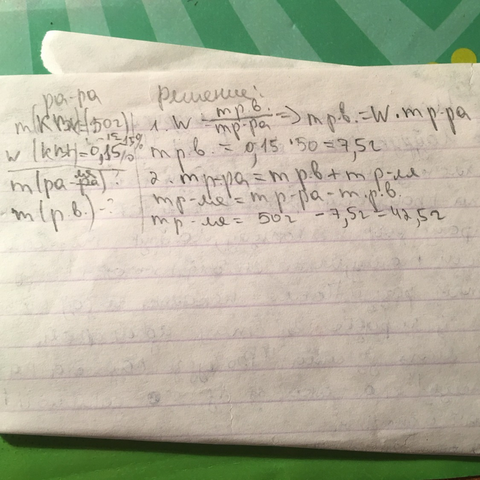 ра-ра
m(KNO3)=(50г)
w (KNO3)=0,15%
m(ра-ля)?
m(р.в.)-?
Решение:
1. W = mр.в. / mр-ра => mр.в.=W·mр-ра
mр.в. = 0,15·50=7,5г
2. mр-ра=mр.в+mр-ля
mр-ля=mр-ра-mр.в.
mр-ля= 50г -7,5г=42,5г